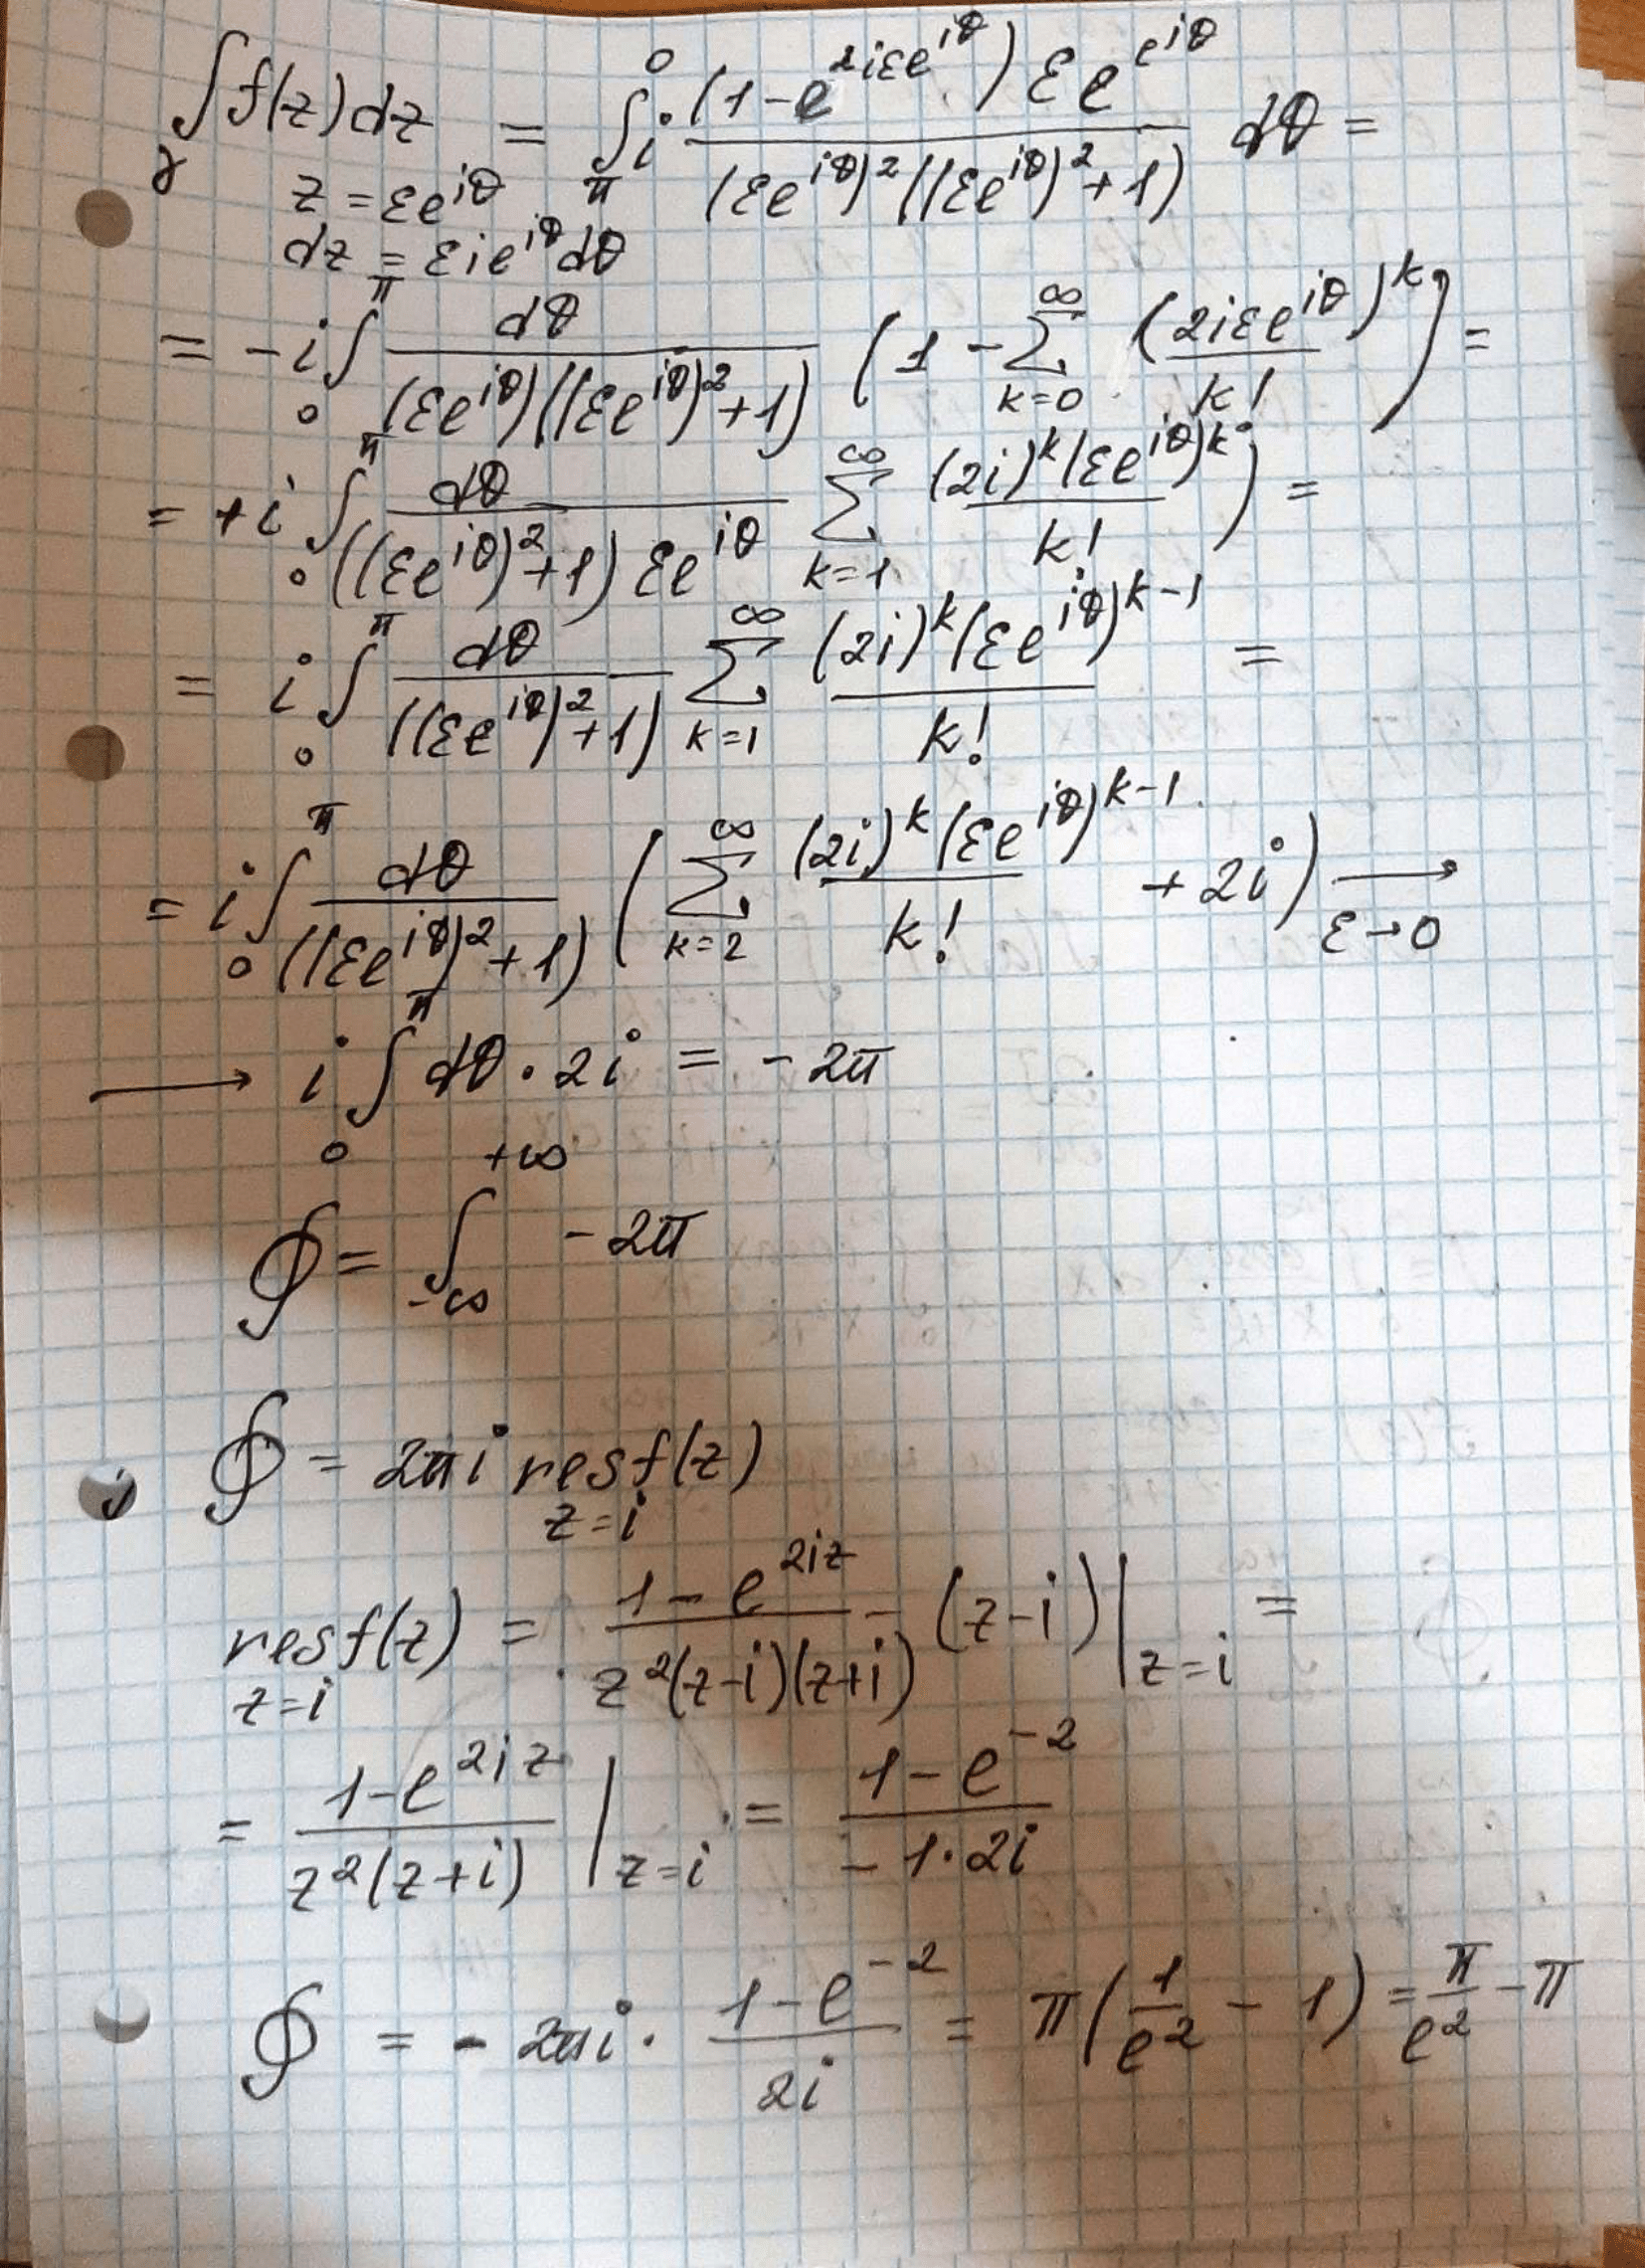 ∫_γ f(z)dz = ∫_π^0 i (1-e^{2iεe^{iθ}}) εe^{e^{iθ}} / ((εe^{iθ})^2((εe^{iθ})^2+1)) dθ =
z = εe^{iθ}
dz = εie^{iθ}dθ
= -i ∫_0^π dθ / ((εe^{iθ})((εe^{iθ})^2+1)) (1 - ∑_{k=0}^∞ (2iεe^{iθ})^k / k!) =
= +i ∫_0^π dθ / (((εe^{iθ})^2+1) εe^{iθ}) ∑_{k=1}^∞ (2i)^k(εe^{iθ})^k / k! ) =
= i ∫_0^π dθ / ((εe^{iθ})^2+1) ∑_{k=1}^∞ (2i)^k(εe^{iθ})^{k-1} / k! =
= i ∫_0^π dθ / ((εe^{iθ})^2+1) (∑_{k=2}^∞ (2i)^k(εe^{iθ})^{k-1} / k! + 2i) →_{ε→0}
→ i ∫_0^π dθ · 2i = -2π
∮ = ∫_{-∞}^{+∞} -2π
∮ = 2πi res f(z)
z=i
res f(z) = (1-e^{2iz}) / (z^2(z-i)(z+i)) (z-i) |_{z=i} =
z=i
= (1-e^{2iz}) / (z^2(z+i)) |_{z=i} = (1-e^{-2}) / (-1·2i)
∮ = -2πi · (1-e^{-2}) / 2i = π(1/e^2 - 1) = π/e^2 - π